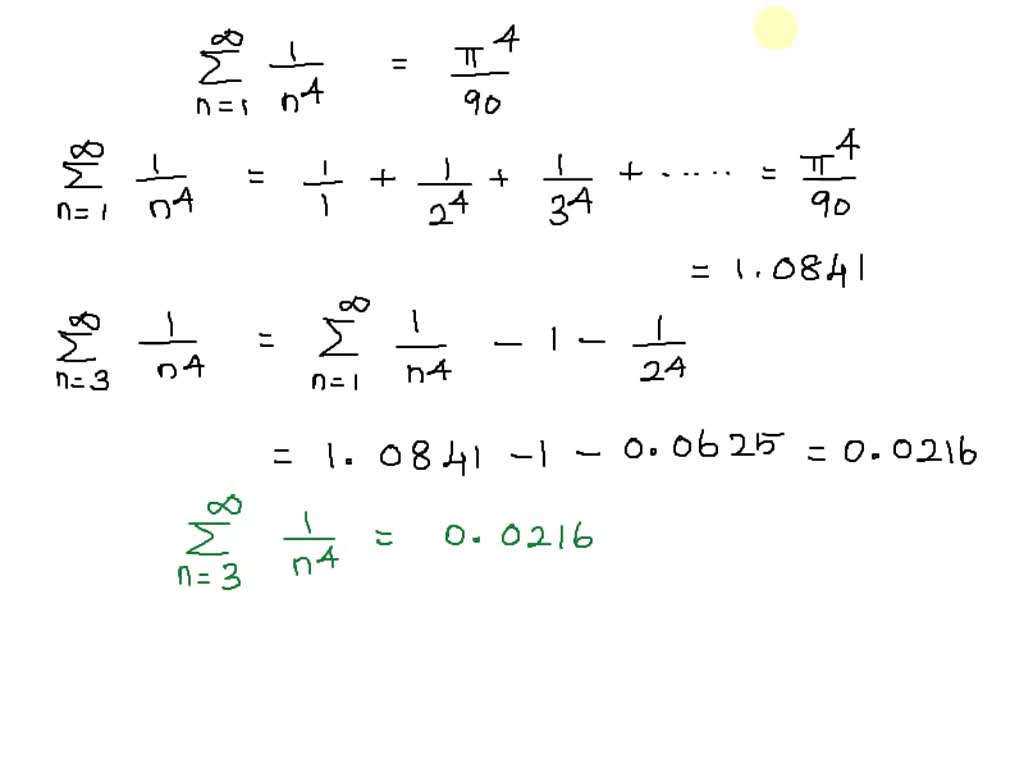 ∞∑n=1 1/n⁴ = π⁴/90
∞∑n=1 1/n⁴ = 1/1 + 1/2⁴ + 1/3⁴ + ..... = π⁴/90
= 1.0841
∞∑n=3 1/n⁴ = ∞∑n=1 1/n⁴ - 1 - 1/2⁴
= 1.0841 - 1 - 0.0625 = 0.0216
∞∑n=3 1/n⁴ = 0.0216